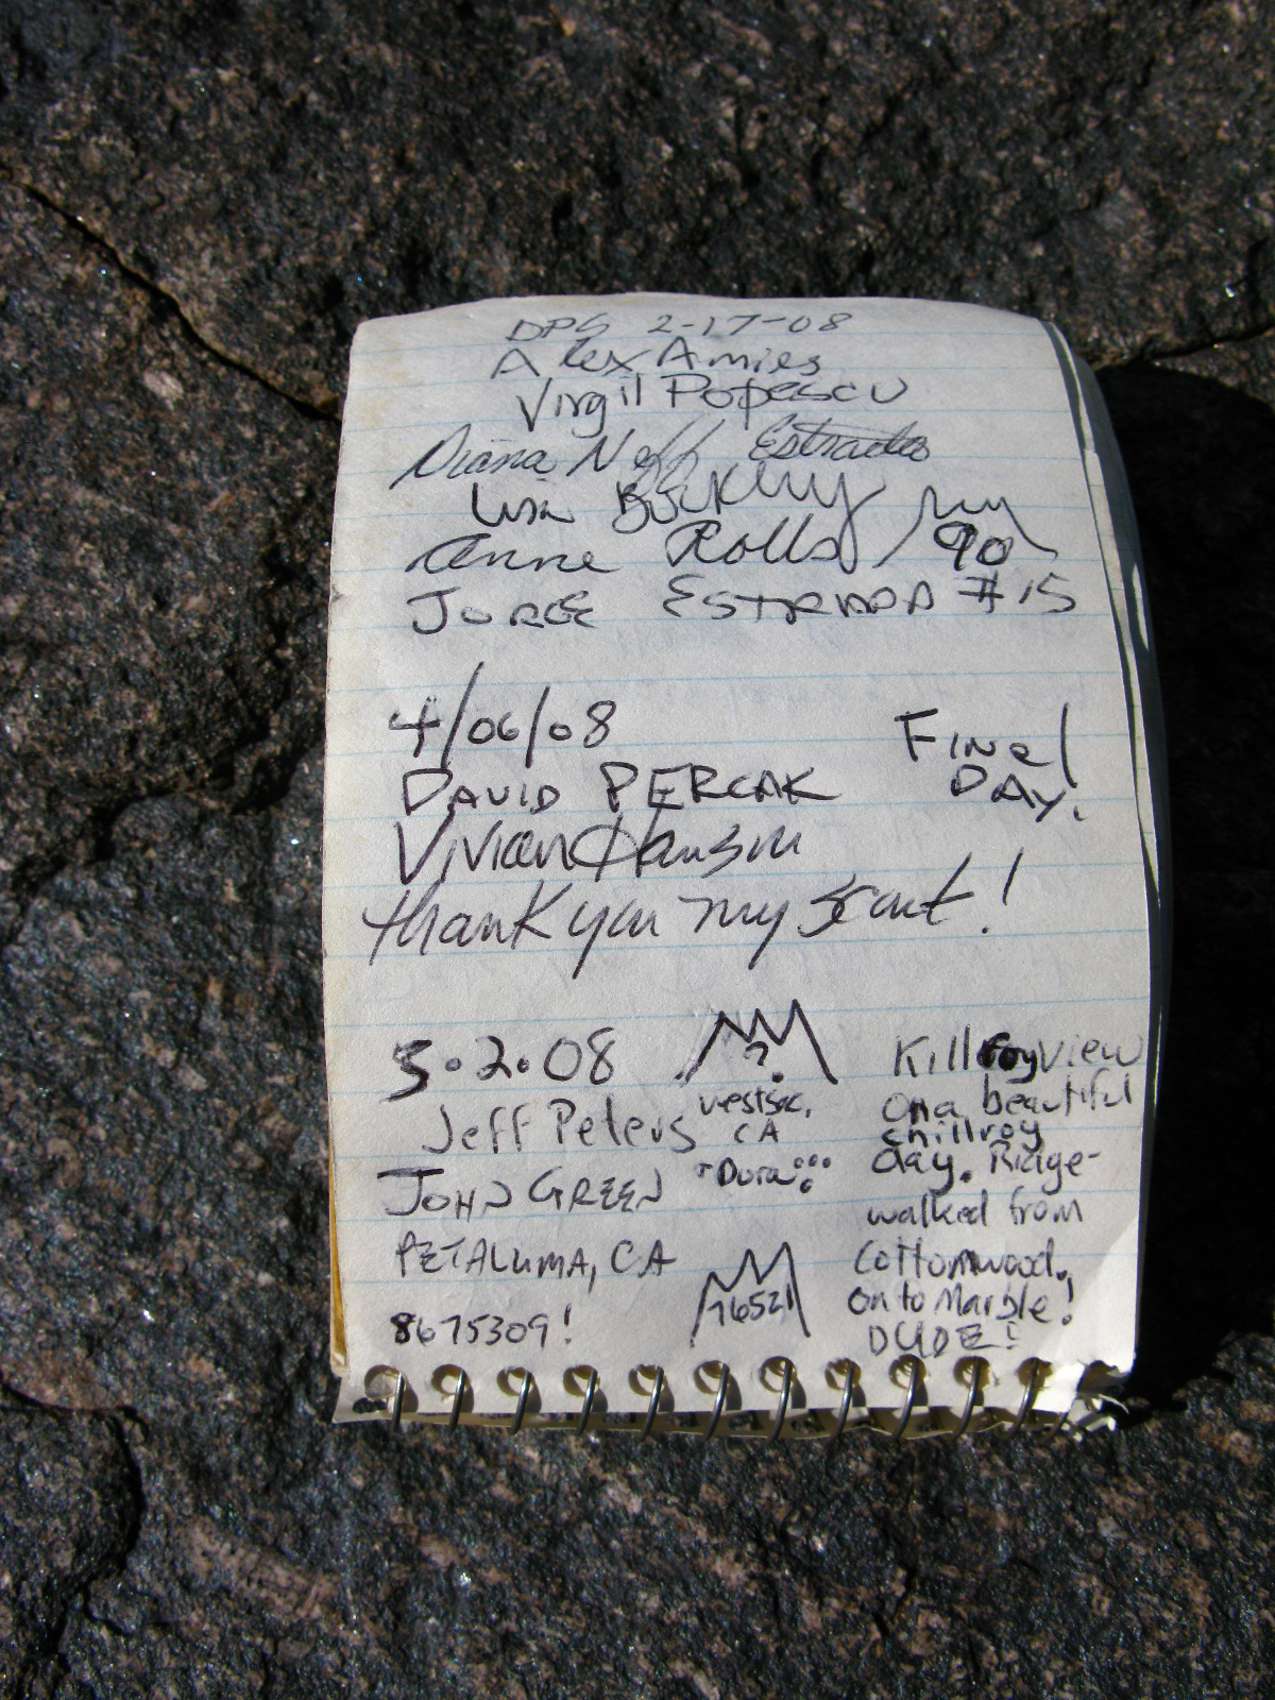 DPS 2-17-08
Alex Amies
Virgil Popescu
Diana Neff Estrada
Lisa Buckley
Anne Rolls 90
JORGE ESTRADA #15
4/06/08
FINAL
DAVID PERCAK
DAY.
Vivian Hanson
thank you my scout!
5.2.08
?
Killroy view
Jeff Peters
westsac,
CA
on a beautiful
chillroy
JOHN GREEN
"Dora"
day. Ridge-
walked from
PETALUMA, CA
Cottonwood,
8675309!
76521
on to Marble!
DUDE!